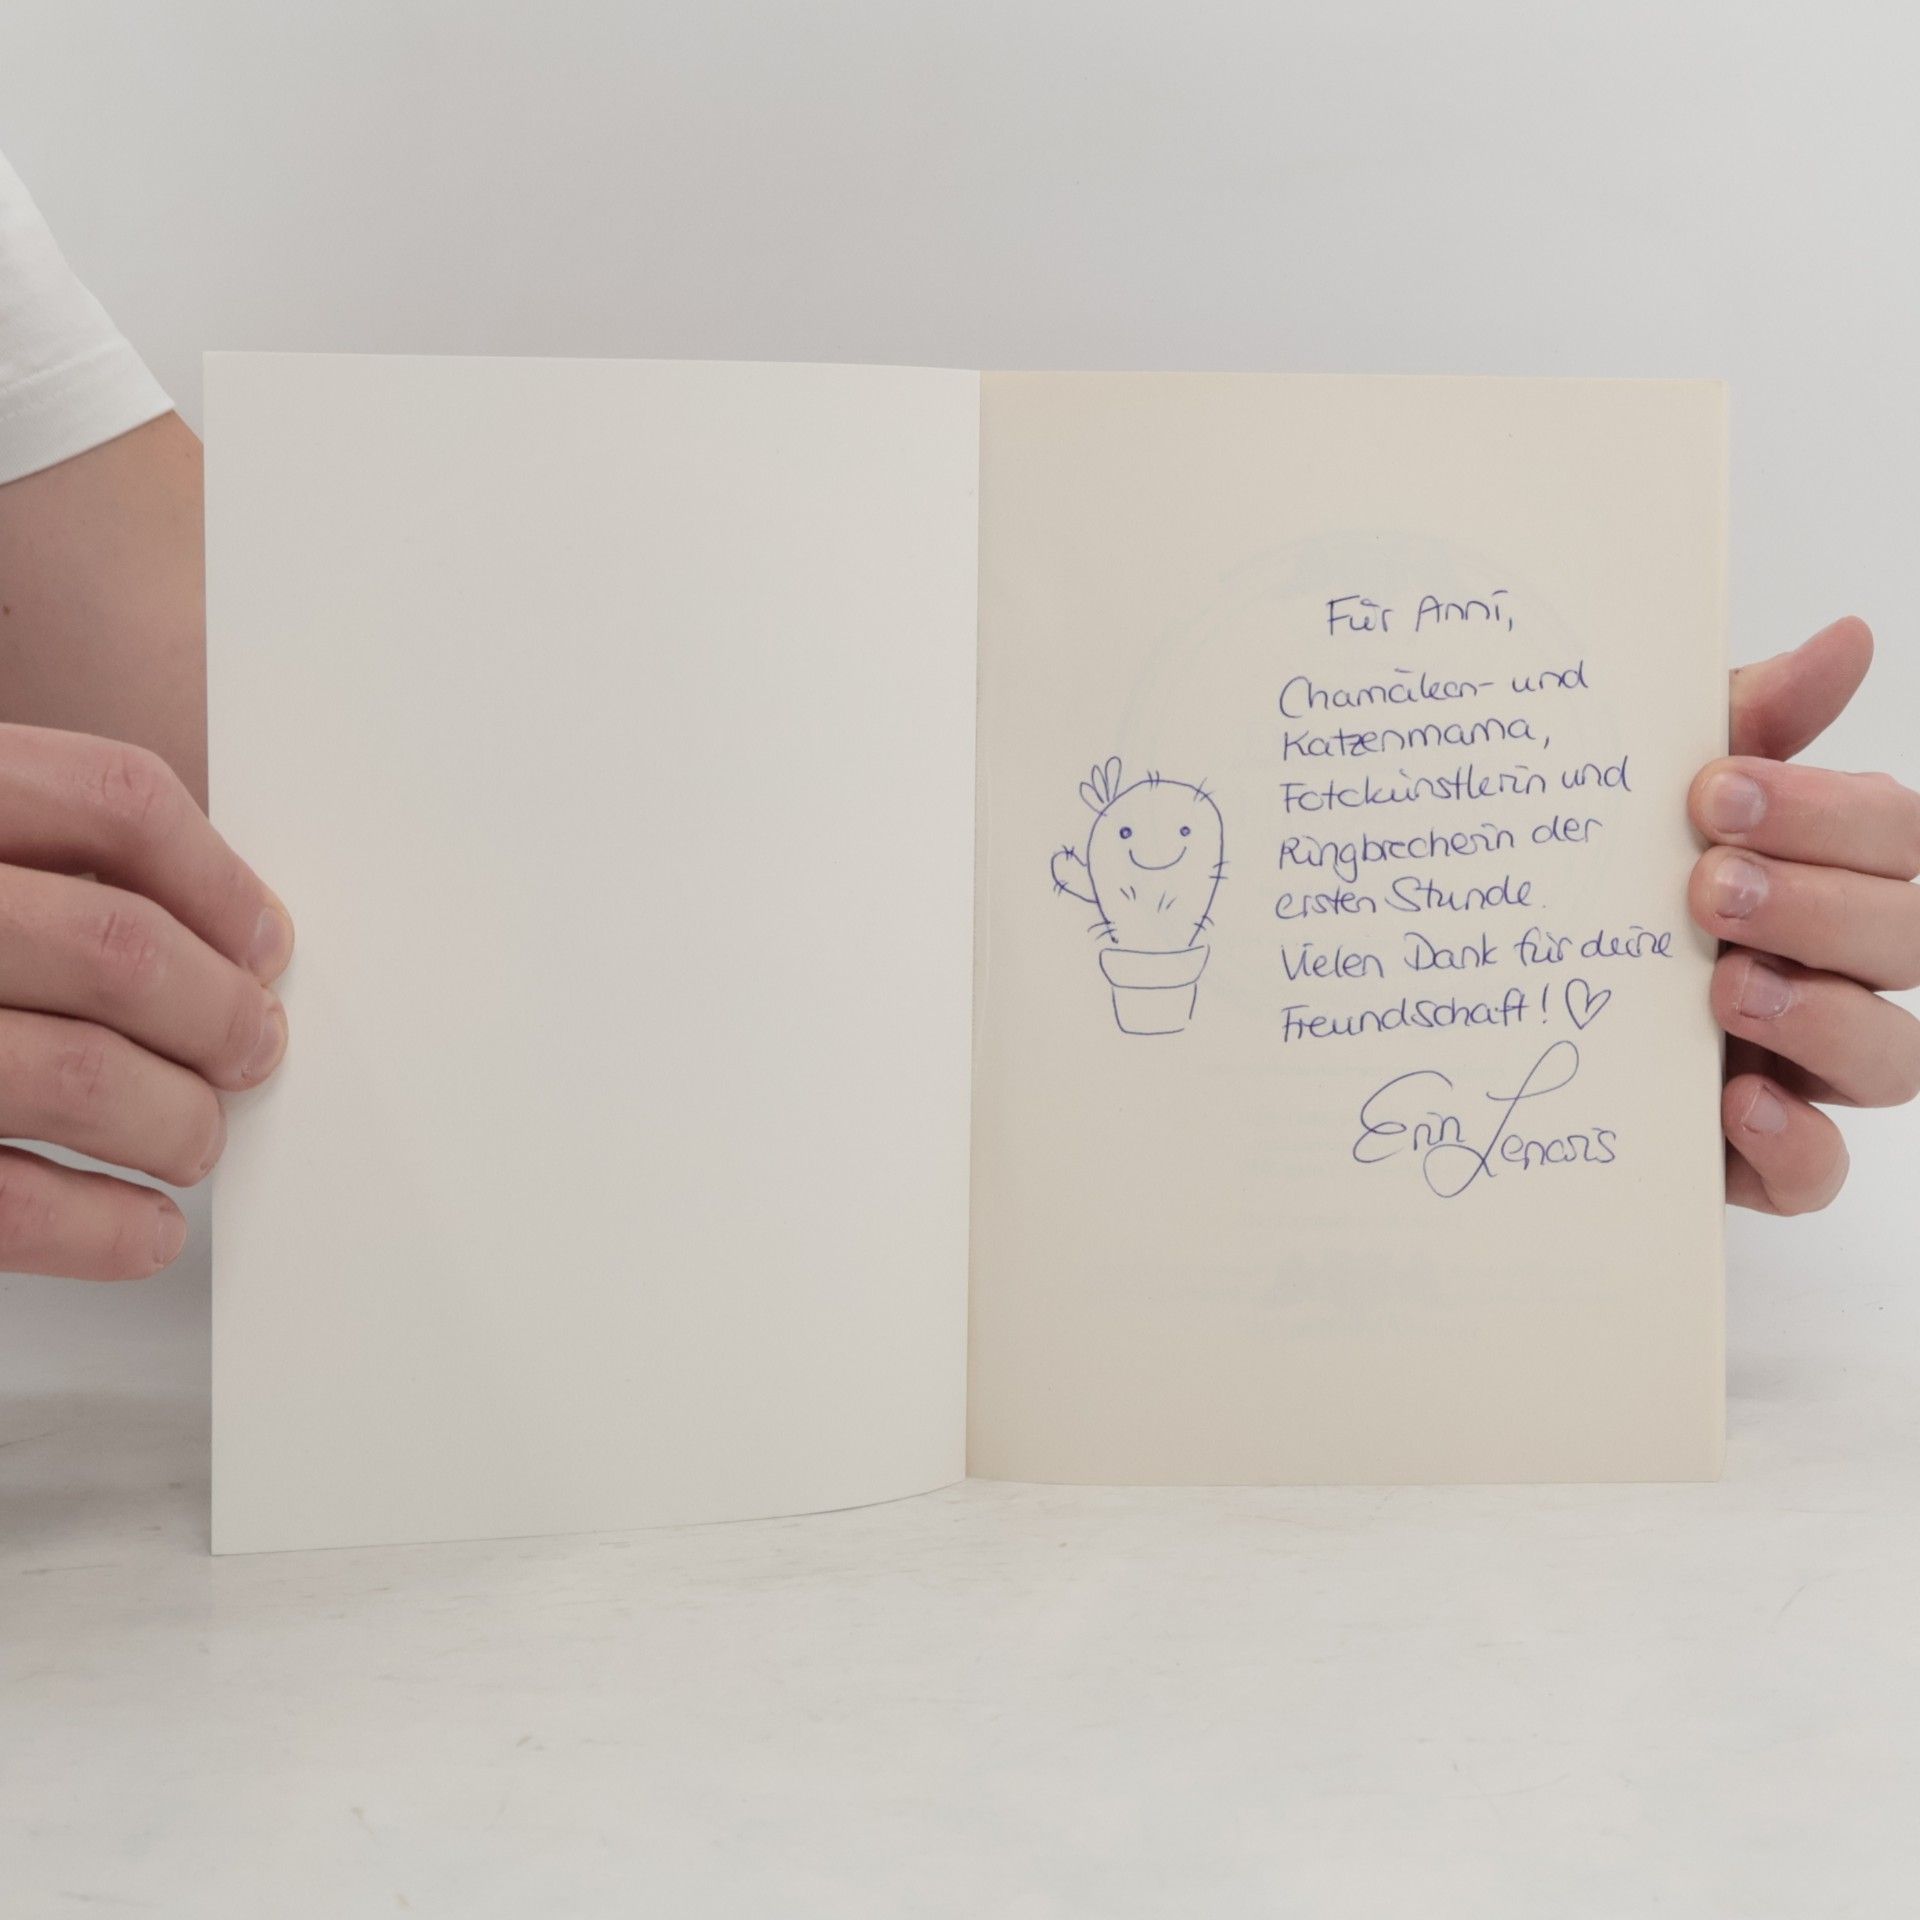 Für Anni,
Chamäleon- und
Katzenmama,
Fotokünstlerin und
Ringbrecherin der
ersten Stunde.
Vielen Dank für deine
Freundschaft! ♡
Erin Lenaris